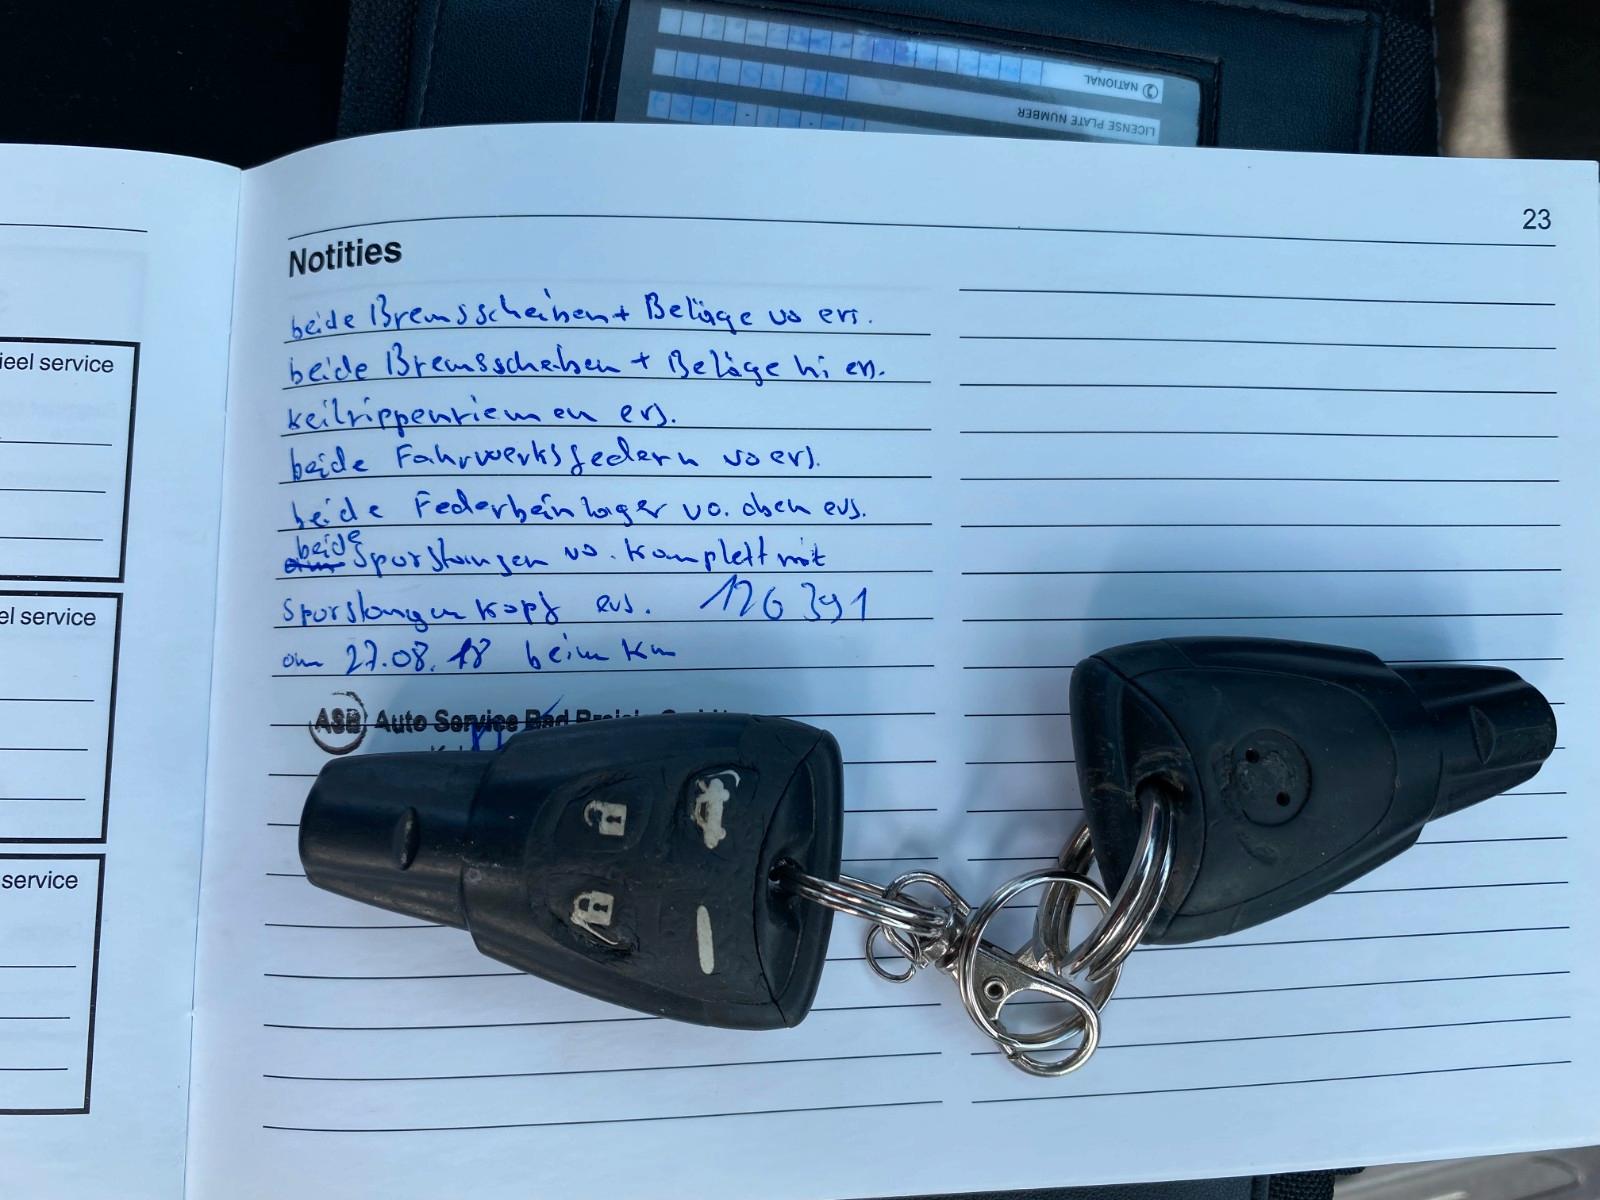 NATIONAL
LICENSE PLATE NUMBER
23
Notities
beide Bremsscheiben + Beläge vo ers.
beide Bremsscheiben + Beläge hi ers.
Keilrippenriemen ers.
beide Fahrwerksfedern vo ers.
beide Federbeinlager vo. oben ers.
beide Spurstangen vo. komplett mit
Spurstangenkopf ers. 126391
am 27.08.18 beim Km
ASB Auto Service Bad
ieel service
el service
service